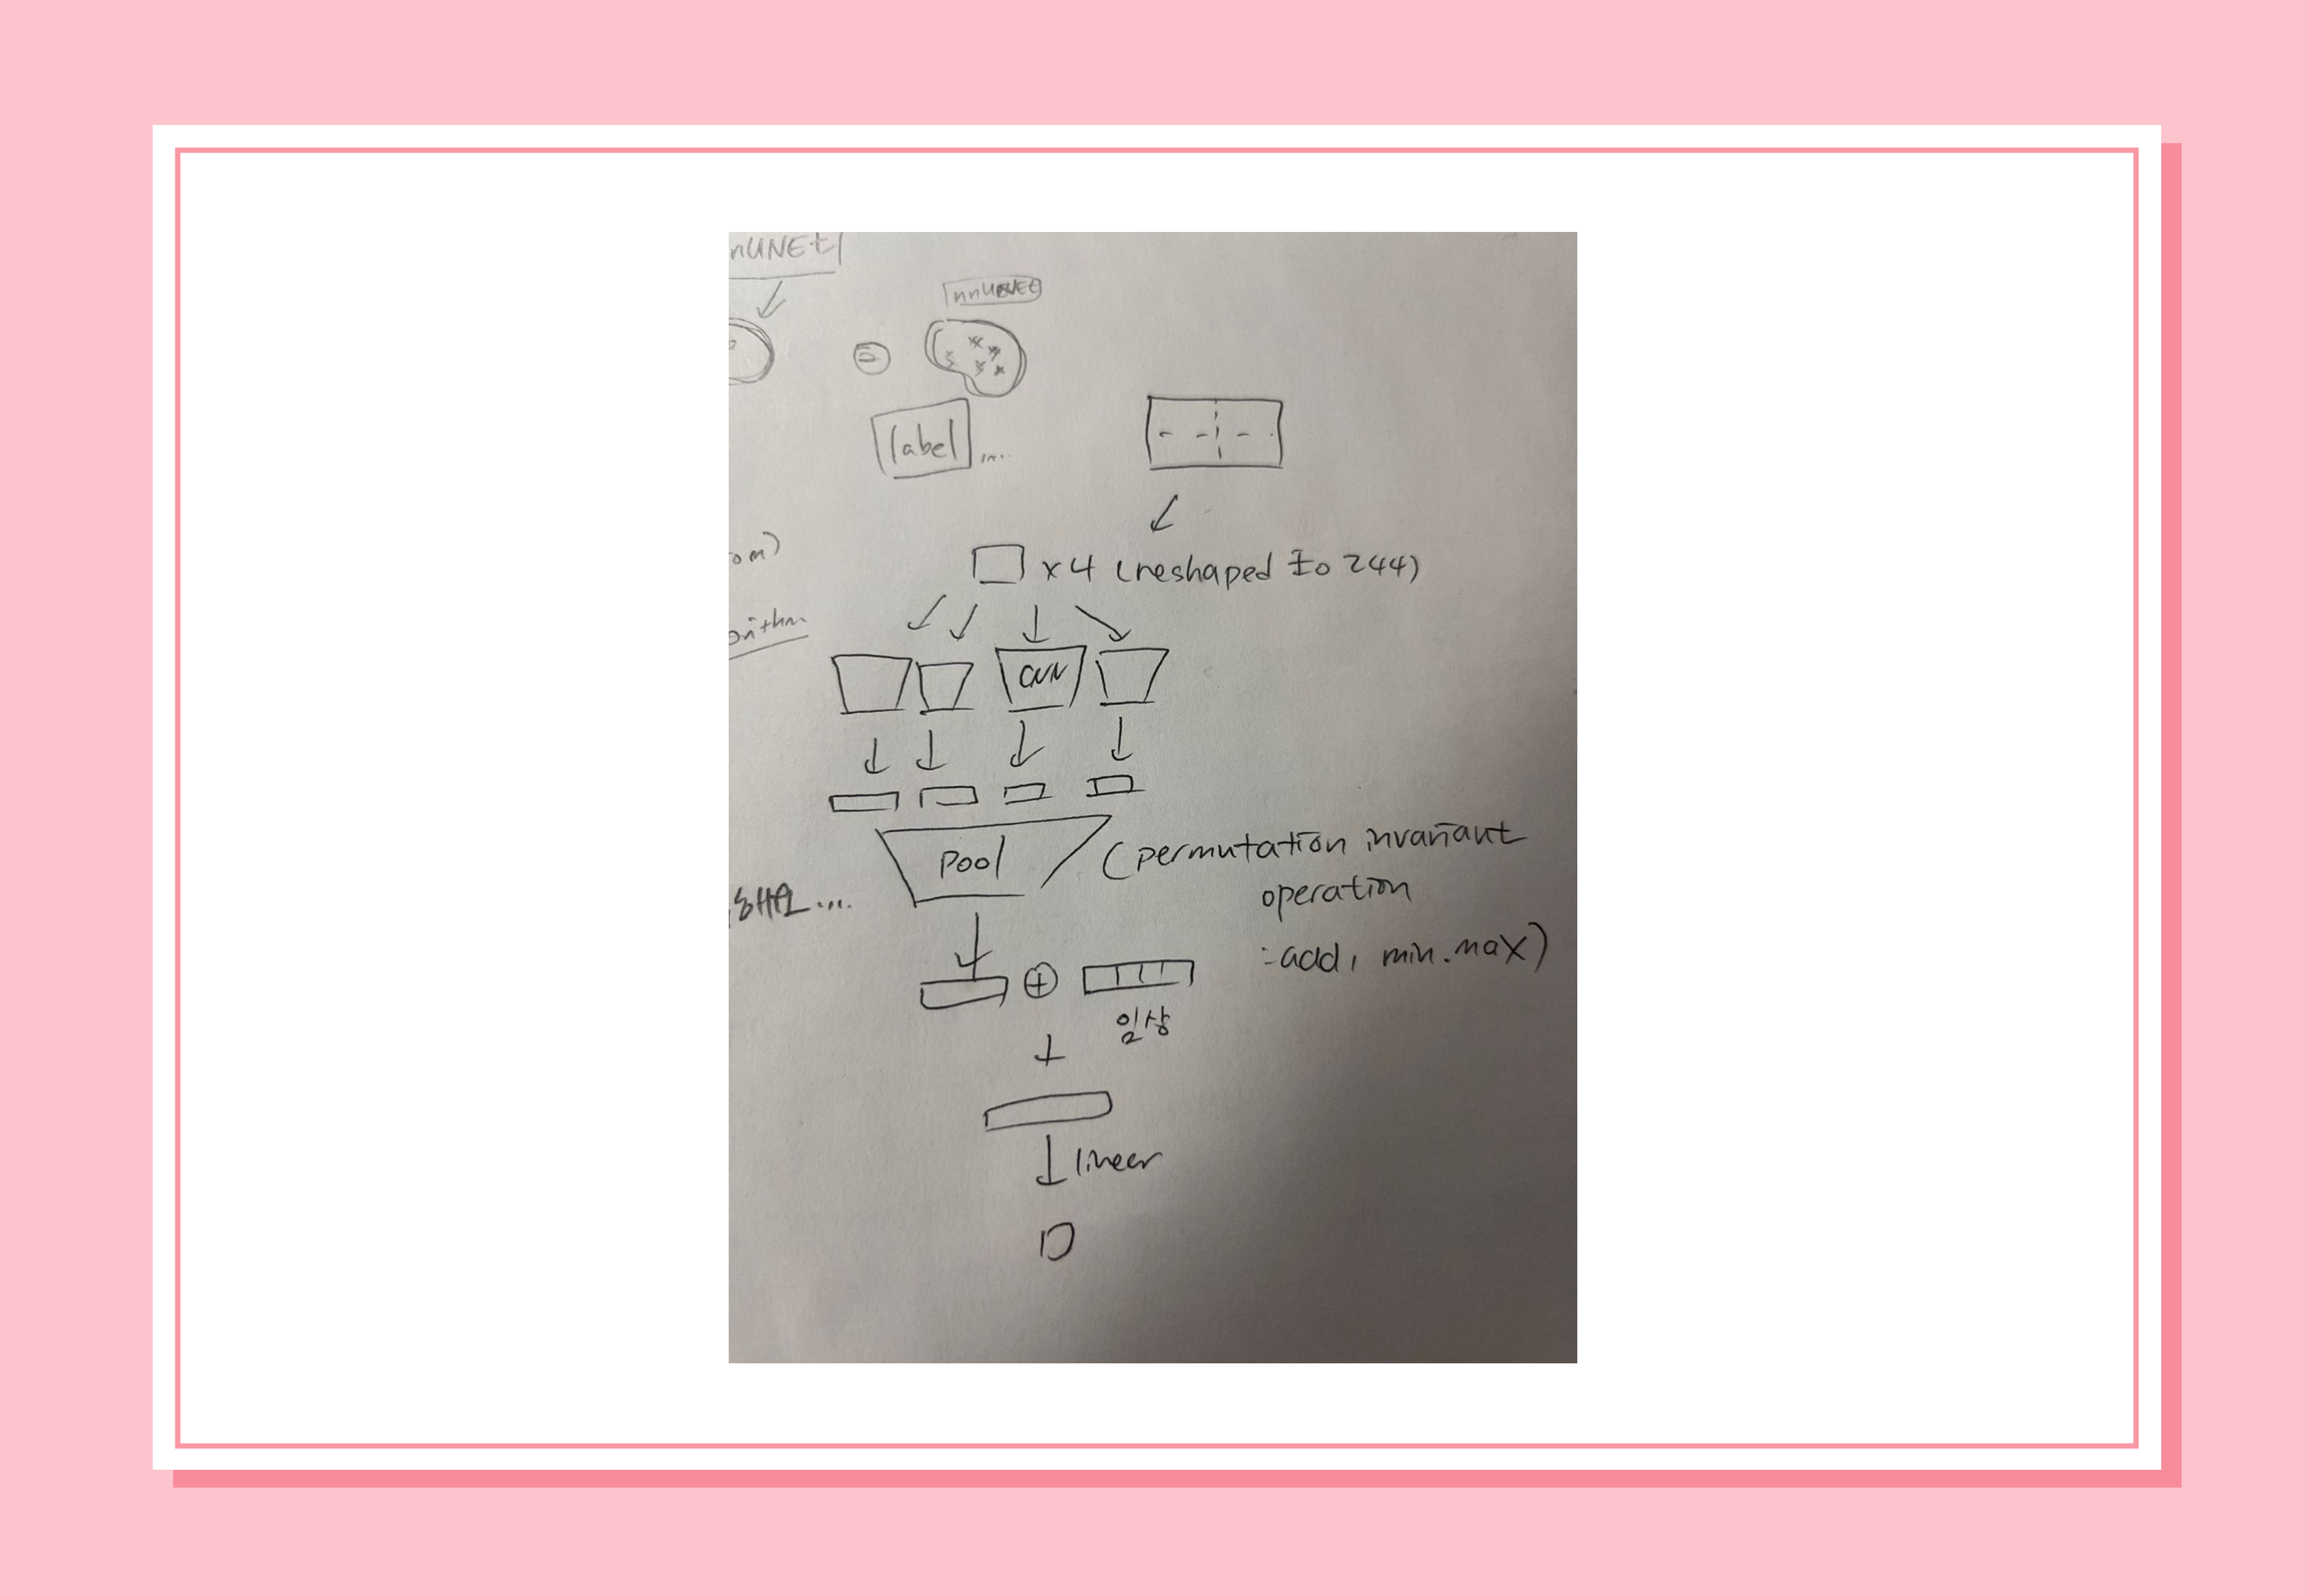 nUNEt
nnUNEt
label ...
x4 (reshaped to 244)
CNN
Pool
(permutation invariant
operation
=add, min.max)
...
임상
linear